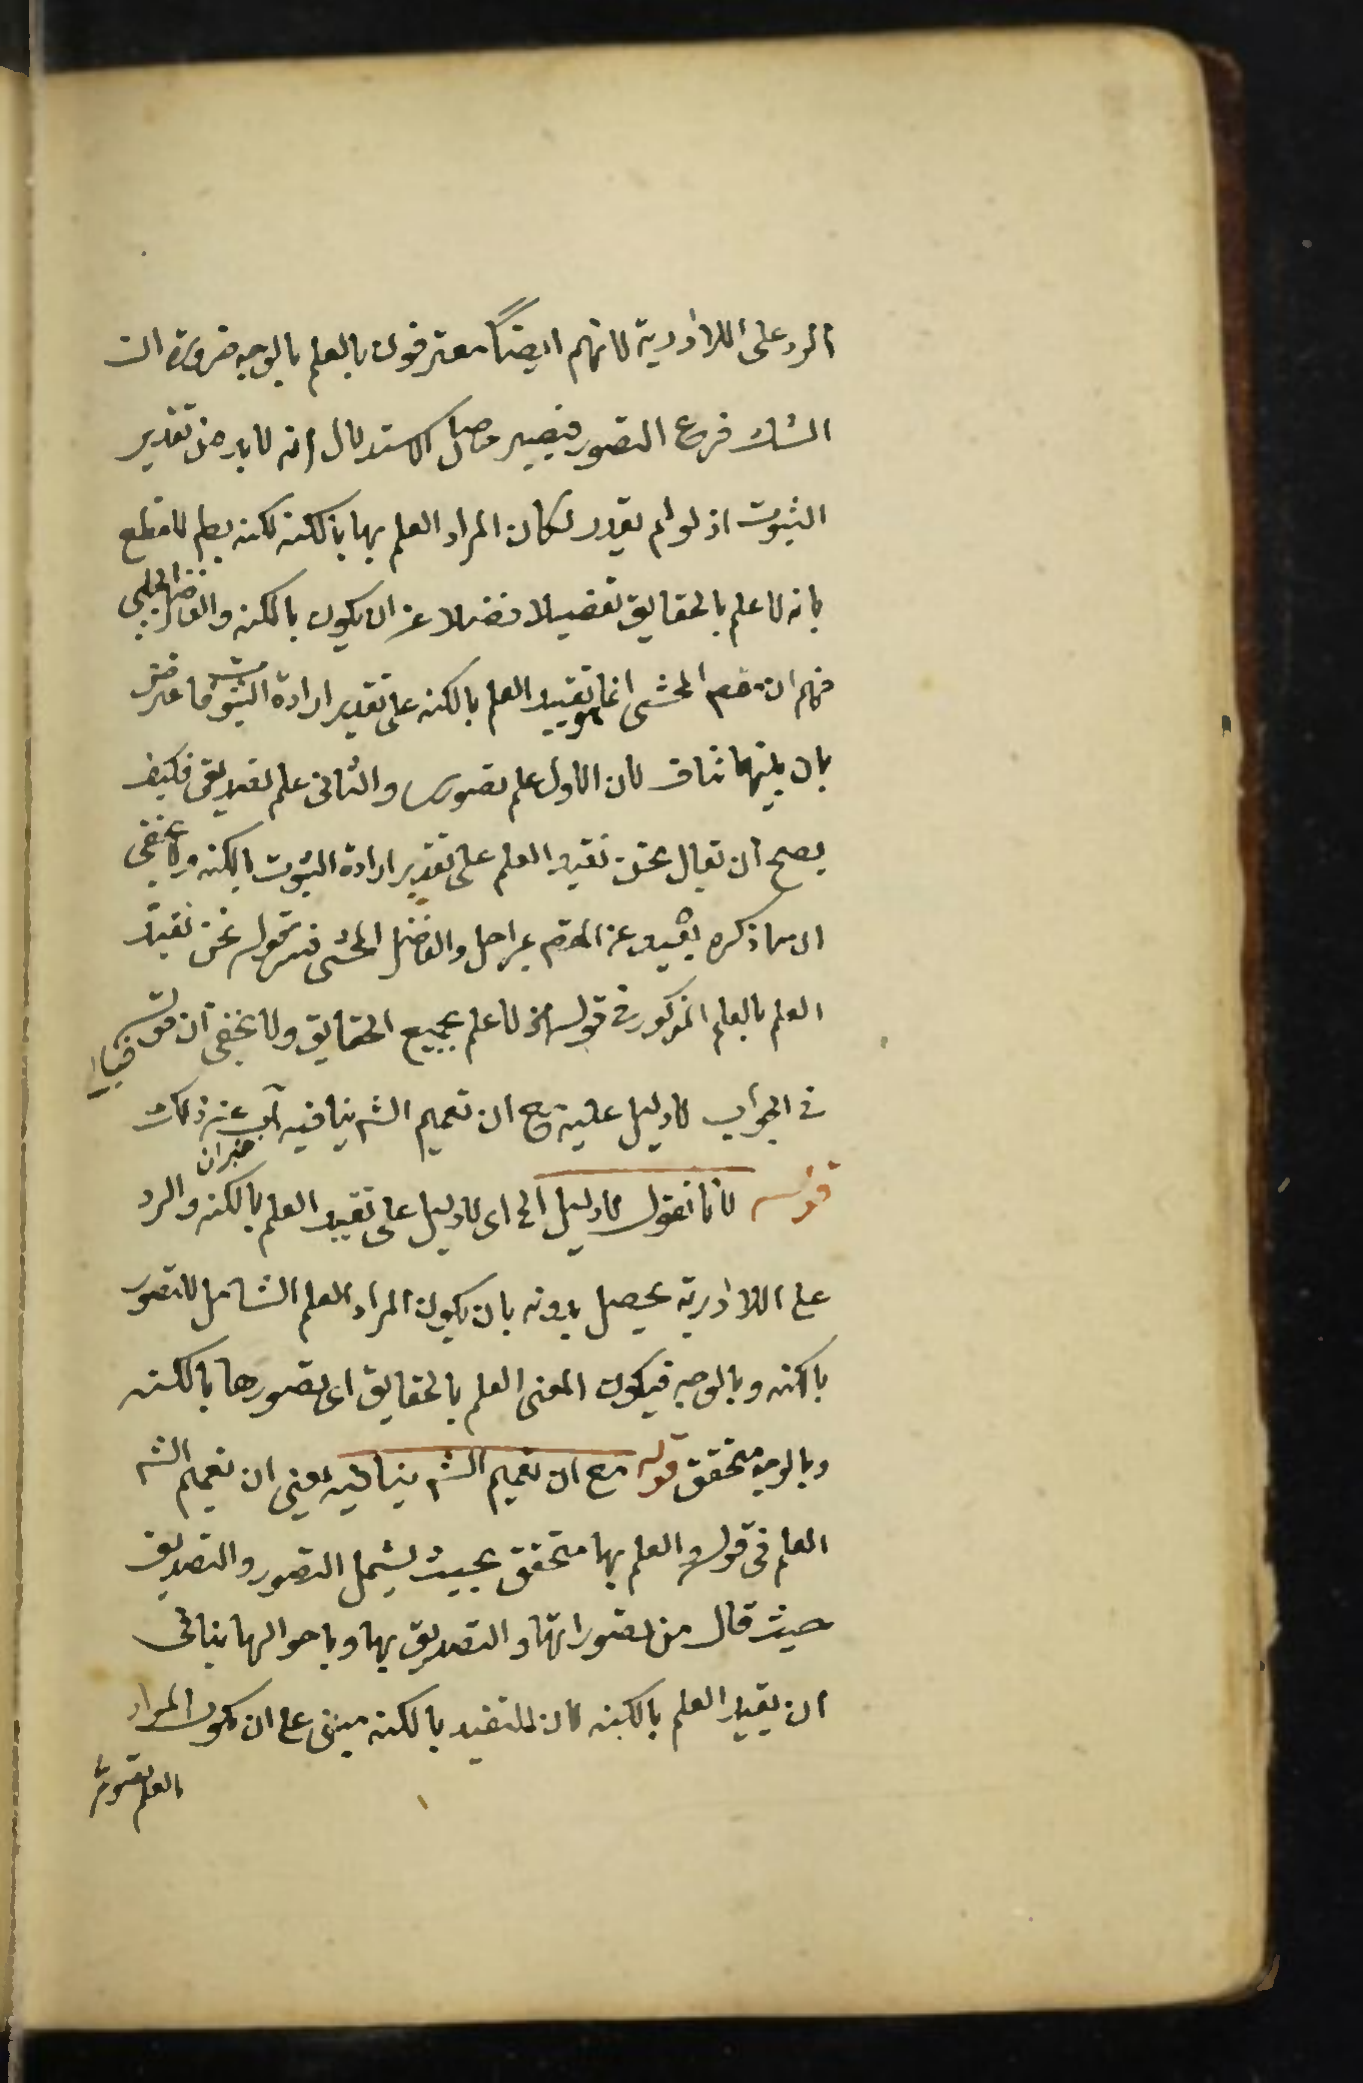 الرد على اللاادرية لانهم ايضاً معترفون بالعلم بالوجه ضرورة ان
الشك فرع التصور فيصير حاصل الاستدلال انه لا بد من تقدير
الثبوت اذ لو لم يقدر لكان المراد العلم بها بالكنه لكنه بط للقطع
بانه لا علم بالحقايق تفصيلا فضلا عن ان يكون بالكنه والفاضل الجلبى
فهم ان المحشى انما هو تقييد العلم بالكنه على تقدير ارادة الثبوت فاعترض
بان بينهما تناف لان الاول علم تصورى والثانى علم تصديقى فكيف
يصح ان يقال نحن نقيد العلم على تقدير ارادة الثبوت بالكنه ولا يخفى
ان ما ذكره بعيد عن بمراحل والفاضل المحشى فسر قوله نحن نقيد
العلم بالعلم المذكور فى قوله لا علم بجميع الحقايق ولا يخفى ان قوله
فى الجواب لا دليل عليه مع ان تعميم الش ينافيه آب عن ذلك
قوله لانا نقول لا دليل الخ اى لا دليل على تقييد العلم بالكنه والرد
على اللاادرية يحصل بدونه بان يكون المراد العلم الشامل للتصور
بالكنه وبالوجه فيكون المعنى العلم بالحقايق اى تصورها بالكنه
وبالوجه متحقق قوله مع ان تعميم الش ينافيه يعنى ان تعميم الش
العلم فى قوله والعلم بها متحقق بحيث يشمل التصور والتصديق
حيث قال من تصوراتها والتصديق بها وباحوالها ينافى
ان يقيد العلم بالكنه لان التقييد بالكنه مبنى على ان يكون المراد
بالعلم التصور